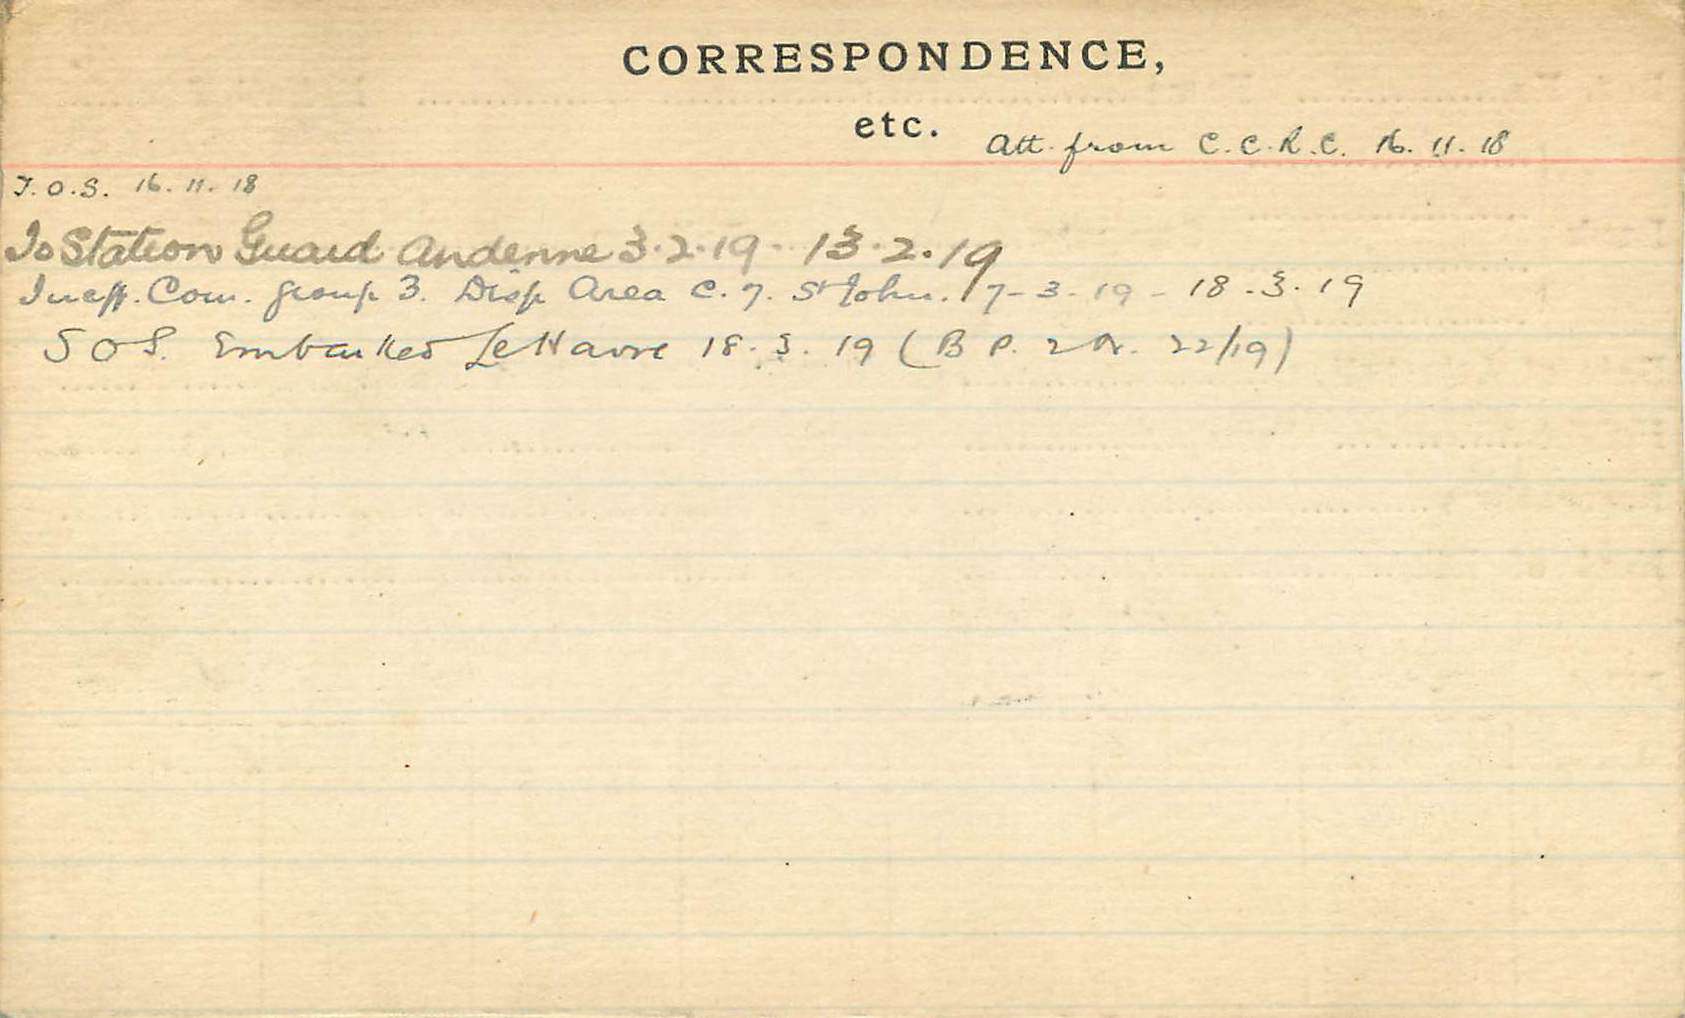 CORRESPONDENCE,
etc.
Att. from C.C.R.C. 16.11.18
T.O.S. 16.11.18
To Station Guard Andenne 3.2.19 - 13.2.19
Ineff. Com. group 3. Disp Area C. 7. St John. 17-3-19 - 18.3.19
SOS. Embarked Le Havre 18.3.19 (B P. 2 Or. 22/19)